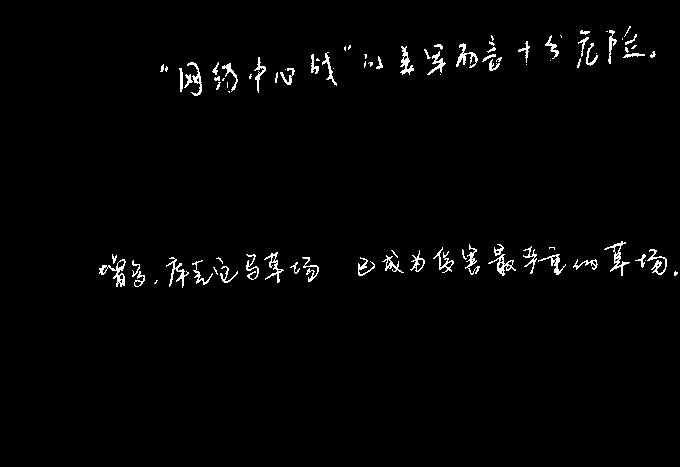 “网络中心战”的美军而言十分危险。
增多,库克它马草场 已成为伤害最严重的草场.